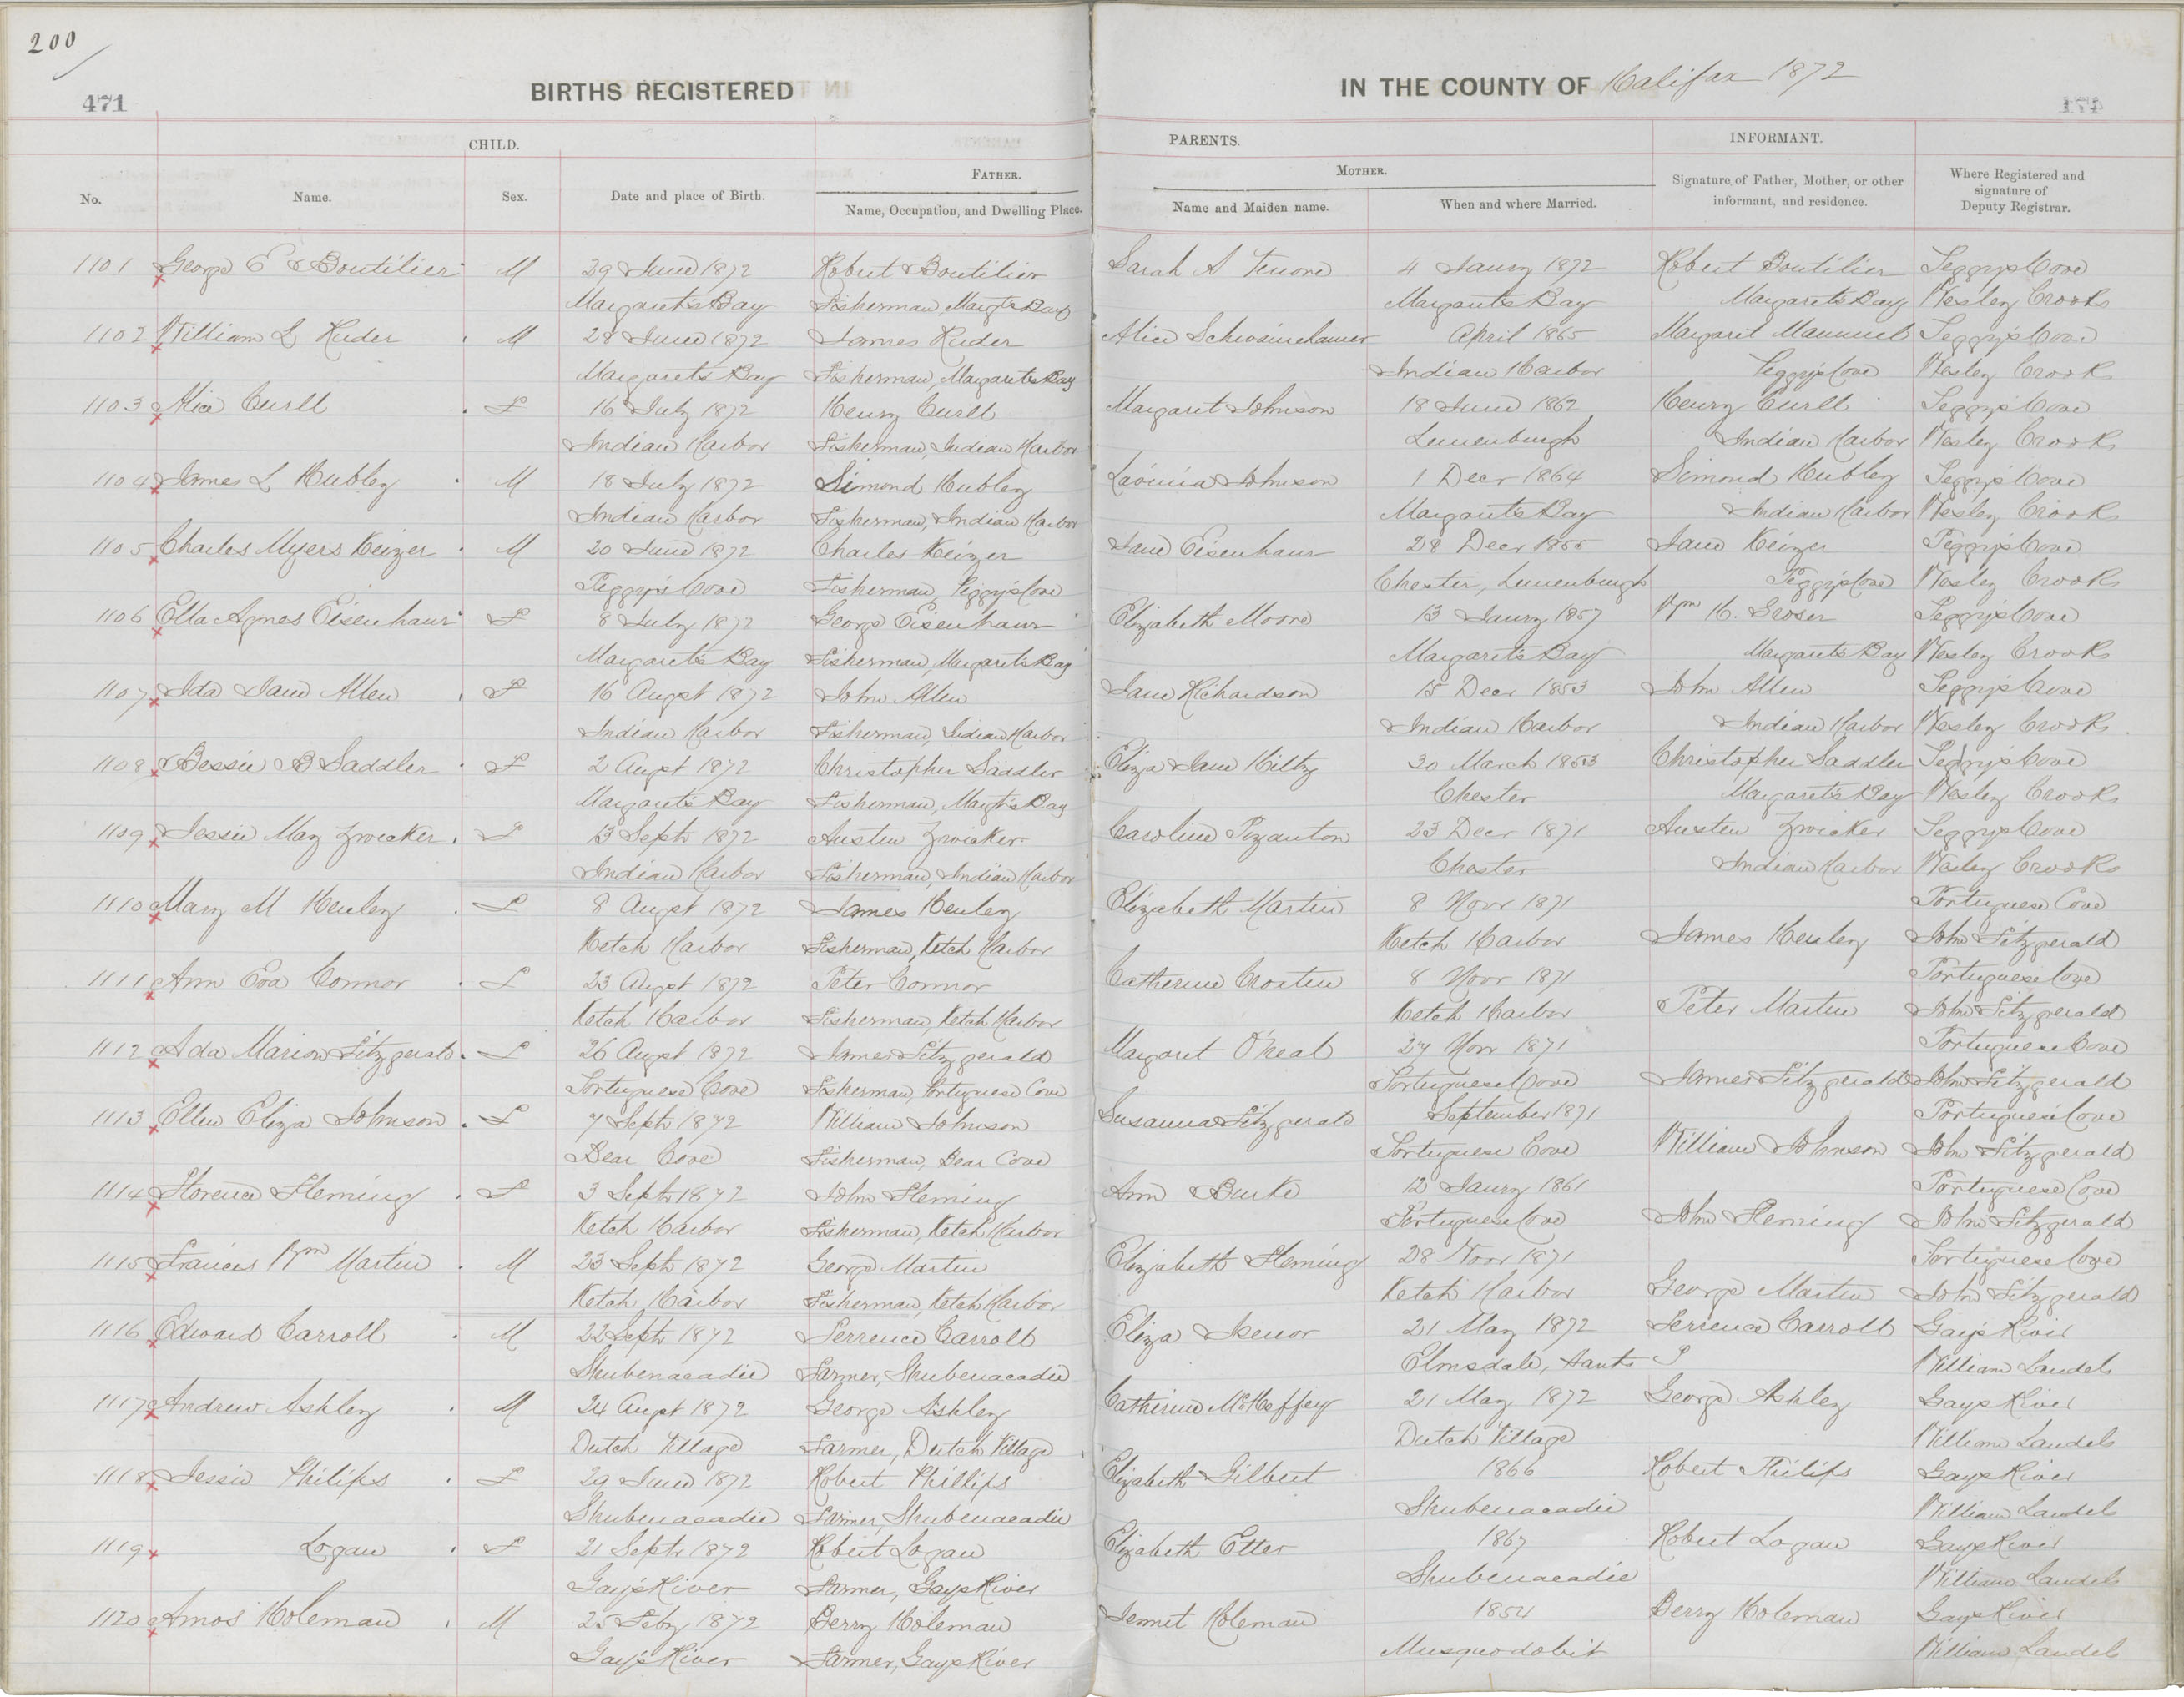 200
471
BIRTHS REGISTERED IN THE COUNTY OF Halifax 1872
CHILD. PARENTS. INFORMANT.
FATHER. MOTHER.
No. Name. Sex. Date and place of Birth. Name, Occupation, and Dwelling Place. Name and Maiden name. When and where Married. Signature of Father, Mother, or other informant, and residence. Where Registered and signature of Deputy Registrar.
1101 George E Boutilier M 29 June 1872 Robert Boutilier Sarah A 4 Jaury 1872 Robert Boutilier Peggys Cove
Margarets Bay Fisherman, Margts Bay Margarets Bay Margarets Bay Wesley Crooks
1102 William L Ruder M 28 June 1872 James Ruder Alice Schwainehamer April 1865 Margaret Manuel Peggys Cove
Margarets Bay Fisherman, Margarets Bay Indian Harbor Peggys Cove Wesley Crooks
1103 Alice Curll F 16 July 1872 Henry Curll Margaret Johnson 18 June 1862 Henry Curll Peggys Cove
Indian Harbor Fisherman, Indian Harbor Lunenburgh Indian Harbor Wesley Crooks
1104 James L Hubley M 18 July 1872 Simond Hubley Lavinia Johnson 1 Decr 1864 Simond Hubley Peggys Cove
Indian Harbor Fisherman, Indian Harbor Margarets Bay Indian Harbor Wesley Crooks
1105 Charles Myers Keizer M 20 June 1872 Charles Keizer Jane Eisenhaur 28 Decr 1855 Jane Keizer Peggys Cove
Peggys Cove Fisherman, Peggys Cove Chester, Lunenburgh Peggys Cove Wesley Crooks
1106 Ella Agnes Eisenhaur F 8 July 1872 George Eisenhaur Elizabeth Moore 13 Jaury 1857 Wm H. Croser Peggys Cove
Margarets Bay Fisherman, Margarets Bay Margarets Bay Margarets Bay Wesley Crooks
1107 Ida Jane Allen F 16 Augst 1872 John Allen Jane Richardson 15 Decr 1853 John Allen Peggys Cove
Indian Harbor Fisherman, Indian Harbor Indian Harbor Indian Harbor Wesley Crooks
1108 Bessie B Saddler F 2 Augst 1872 Christopher Saddler Eliza Jane Hiltz 30 March 1853 Christopher Saddler Peggys Cove
Margarets Bay Fisherman, Margts Bay Chester Margarets Bay Wesley Crooks
1109 Jessie May Zwicker F 13 Septr 1872 Austen Zwicker Caroline Pozanton 23 Decr 1871 Austen Zwicker Peggys Cove
Indian Harbor Fisherman, Indian Harbor Chester Indian Harbor Wesley Crooks
1110 Mary M Henley F 8 Augst 1872 James Henley Elizabeth Martin 8 Novr 1871 Portuguese Cove
Ketch Harbor Fisherman, Ketch Harbor Ketch Harbor James Henley John Fitzgerald
1111 Ann Eva Connor F 23 Augst 1872 Peter Connor Catherine Croatin 8 Novr 1871 Portuguese Cove
Ketch Harbor Fisherman, Ketch Harbor Ketch Harbor Peter Martin John Fitzgerald
1112 Ada Marion Fitzgerald F 26 Augst 1872 James Fitzgerald Margaret O'Neal 27 Novr 1871 Portuguese Cove
Portuguese Cove Fisherman, Portuguese Cove Portuguese Cove James Fitzgerald John Fitzgerald
1113 Ellen Eliza Johnson F 7 Septr 1872 William Johnson Susanna Fitzgerald September 1871 Portuguese Cove
Bear Cove Fisherman, Bear Cove Portuguese Cove William Johnson John Fitzgerald
1114 Florence Fleming F 3 Septr 1872 John Fleming Ann Burke 12 Jaury 1861 Portuguese Cove
Ketch Harbor Fisherman, Ketch Harbor Portuguese Cove John Fleming John Fitzgerald
1115 Francis Wm Martin M 23 Septr 1872 George Martin Elizabeth Fleming 28 Novr 1871 Portuguese Cove
Ketch Harbor Fisherman, Ketch Harbor Ketch Harbor George Martin John Fitzgerald
1116 Edward Carroll M 22 Septr 1872 Terrence Carroll Eliza Isenor 21 May 1872 Terrence Carroll Gays River
Shubenacadie Farmer, Shubenacadie Elmsdale, Hants William Landels
1117 Andrew Ashley M 24 Augst 1872 George Ashley Catherine McHeffey 21 May 1872 George Ashley Gays River
Dutch Village Farmer, Dutch Village Dutch Village William Landels
1118 Jessie Philips F 29 June 1872 Robert Phillips Elizabeth Gilbert 1866 Robert Philips Gays River
Shubenacadie Farmer, Shubenacadie Shubenacadie William Landels
1119 Logan F 21 Septr 1872 Robert Logan Elizabeth Etter 1867 Robert Logan Gays River
Gays River Farmer, Gays River Shubenacadie William Landels
1120 Amos Holeman M 25 Feby 1872 Berry Holeman Jennet Holeman 1854 Berry Holeman Gays River
Gays River Farmer, Gays River Musquodobit William Landels